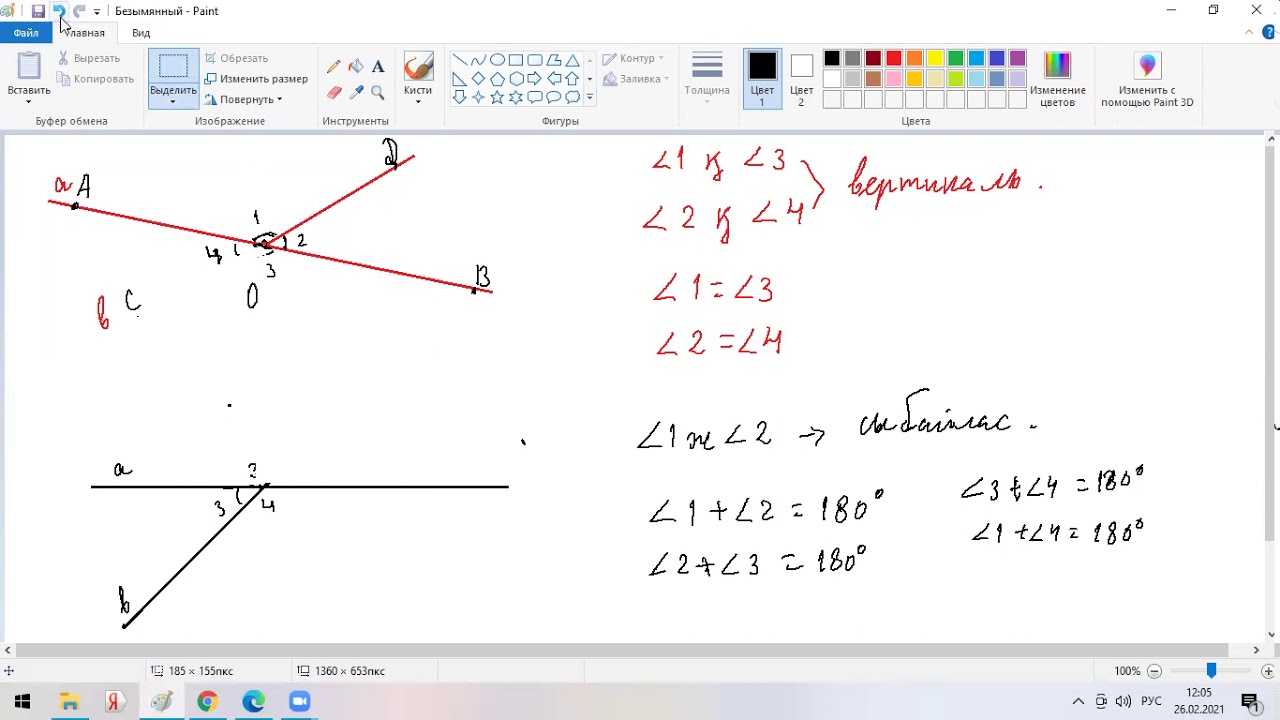 Безымянный - Paint
Файл
Главная
Вид
Вставить
Вырезать
Копировать
Буфер обмена
Выделить
Изменить размер
Повернуть
Изображение
Инструменты
A
Кисти
Контур
Заливка
Фигуры
Толщина
Цвет 1
Цвет 2
Изменение цветов
Цвета
Изменить с помощью Paint 3D
a A
D
1
2
4
3
B
O
b C
∠1 қ ∠3
∠2 қ ∠4
вертикаль.
∠1 = ∠3
∠2 = ∠4
∠1 ж ∠2 → сыбайлас.
∠1 + ∠2 = 180°
∠2 + ∠3 = 180°
∠3 + ∠4 = 180°
∠1 + ∠4 = 180°
a
2
3
4
b
185 × 155пкс
1360 × 653пкс
100%
РУС
12:05
26.02.2021